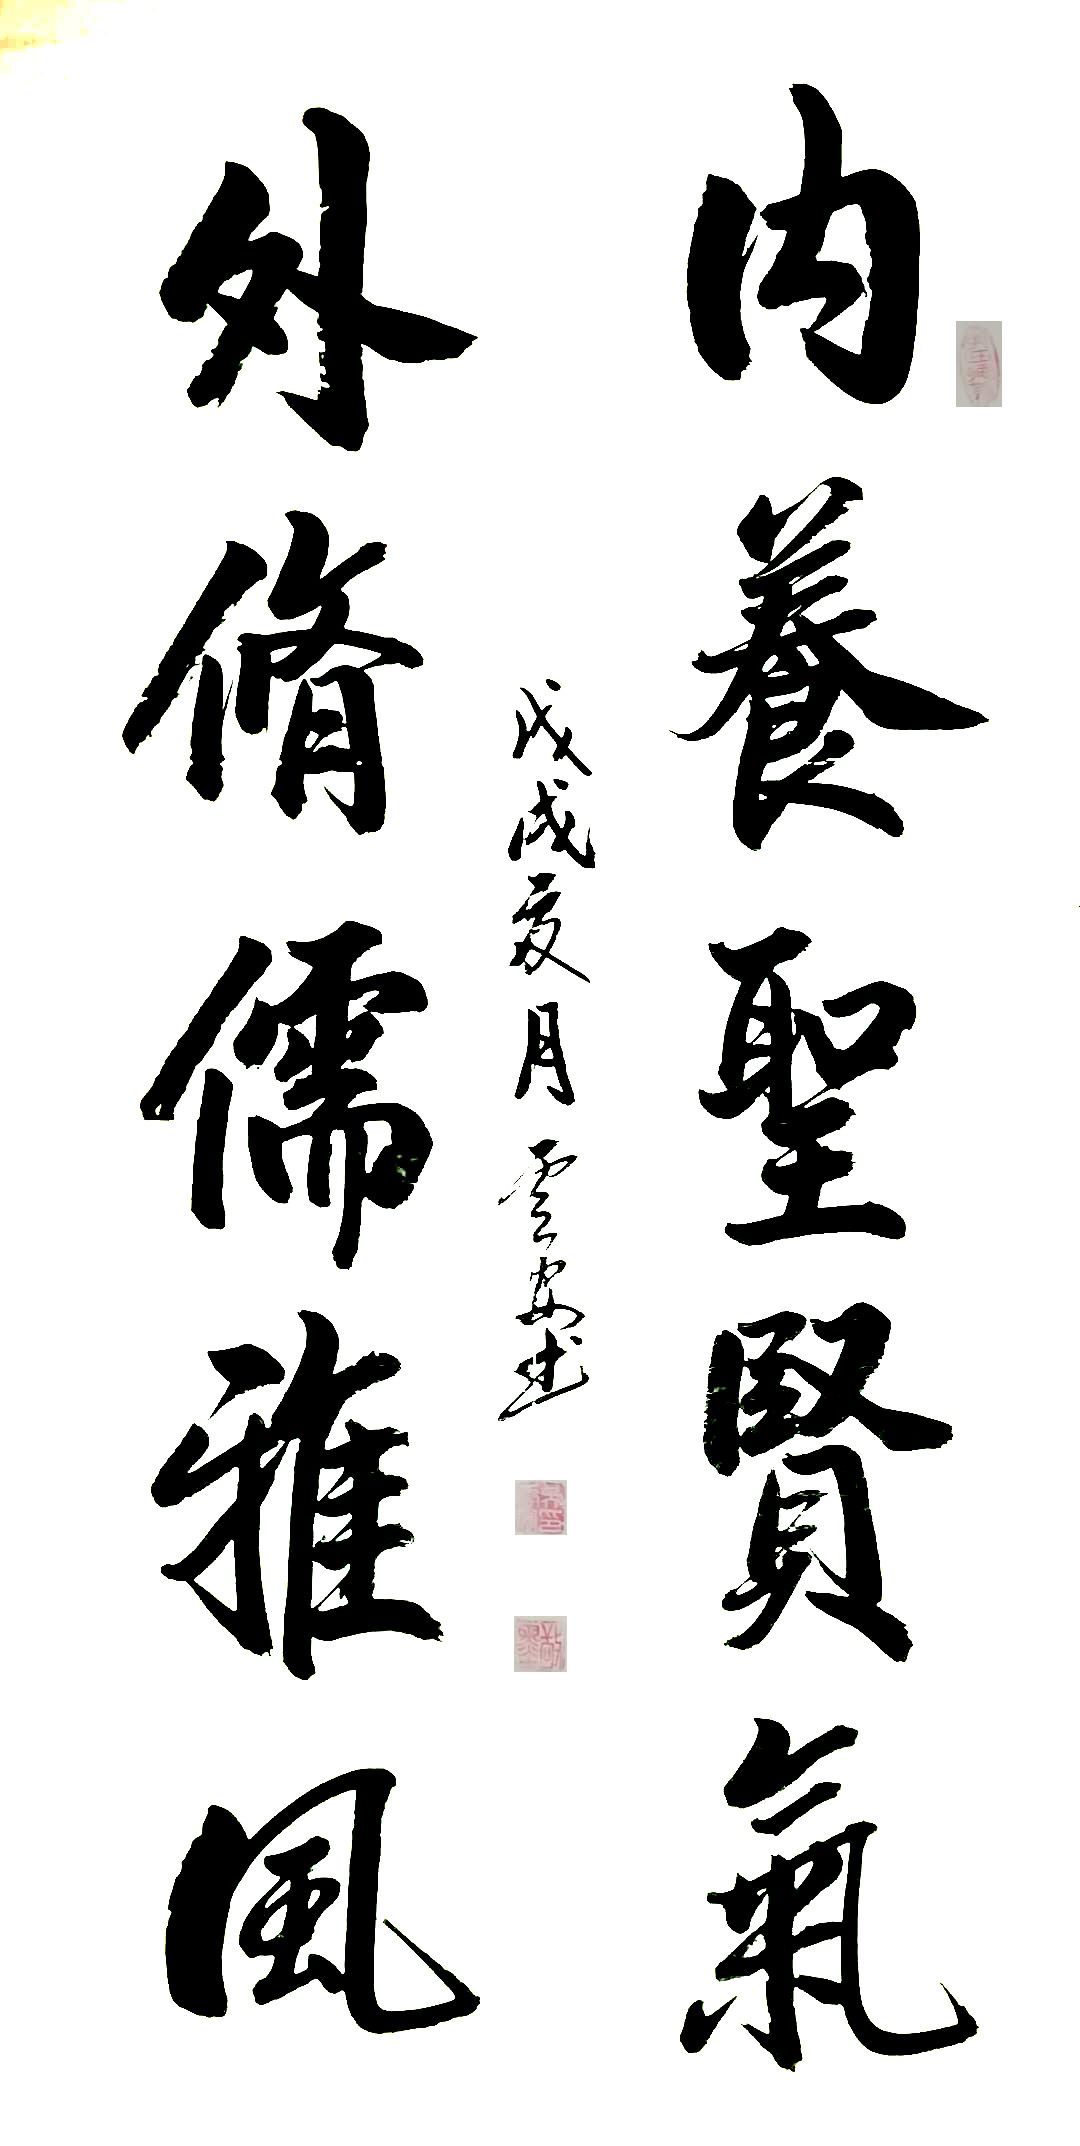 內養聖賢氣
外脩儒雅風
戊戌夏月雲安書